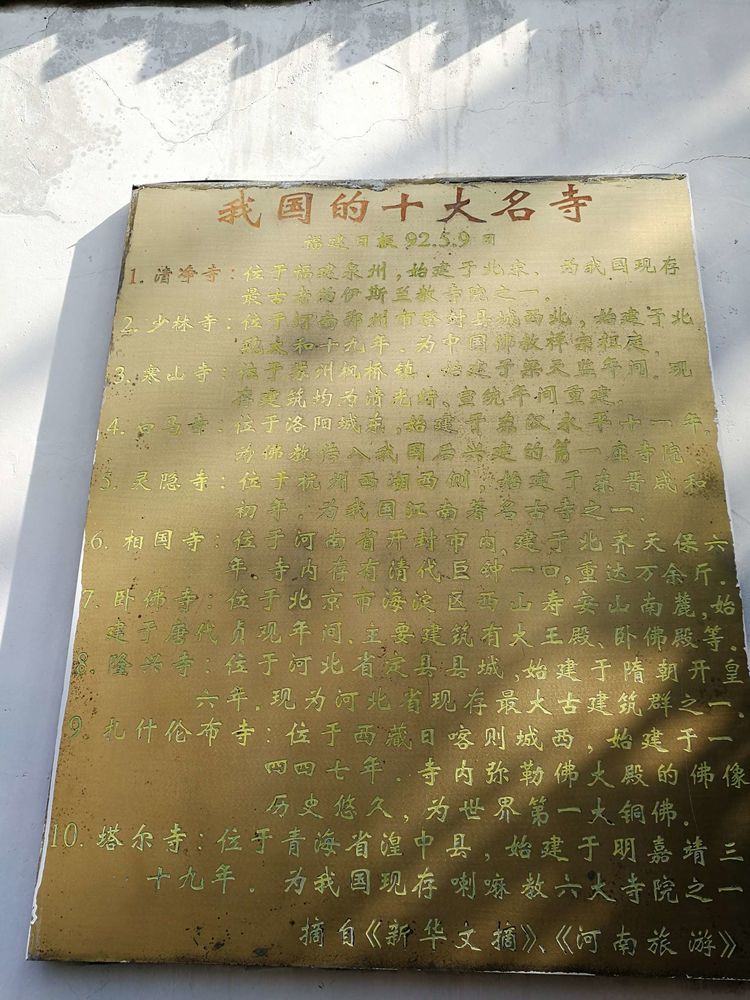 我国的十大名寺
福建日报 92.5.9日
1. 清净寺：位于福建泉州，始建于北宋、为我国现存
最古老的伊斯兰教寺院之一。
2. 少林寺：位于河南郑州市登封县城西北，始建于北
魏太和十九年．为中国佛教禅宗祖庭。
3. 寒山寺：位于苏州枫桥镇．始建于梁天监年间．现
存建筑均为清光绪、宣统年间重建。
4. 白马寺：位于洛阳城东，始建于东汉永平十一年，
为佛教传入我国后兴建的第一座寺院．
5. 灵隐寺：位于杭州西湖西侧，始建于东晋咸和
初年．为我国江南著名古寺之一．
6. 相国寺：位于河南省开封市内，建于北齐天保六
年．寺内存有清代巨钟一口，重达万余斤．
7. 卧佛寺：位于北京市海淀区西山寿安山南麓，始
建于唐代贞观年间．主要建筑有大王殿、卧佛殿等．
8. 隆兴寺：位于河北省定县县城，始建于隋朝开皇
六年．现为河北省现存最大古建筑群之一．
9. 扎什伦布寺：位于西藏日喀则城西，始建于一
四四七年．寺内弥勒佛大殿的佛像
历史悠久，为世界第一大铜佛．
10. 塔尔寺：位于青海省湟中县，始建于明嘉靖三
十九年．为我国现存喇嘛教六大寺院之一
摘自《新华文摘》、《河南旅游》